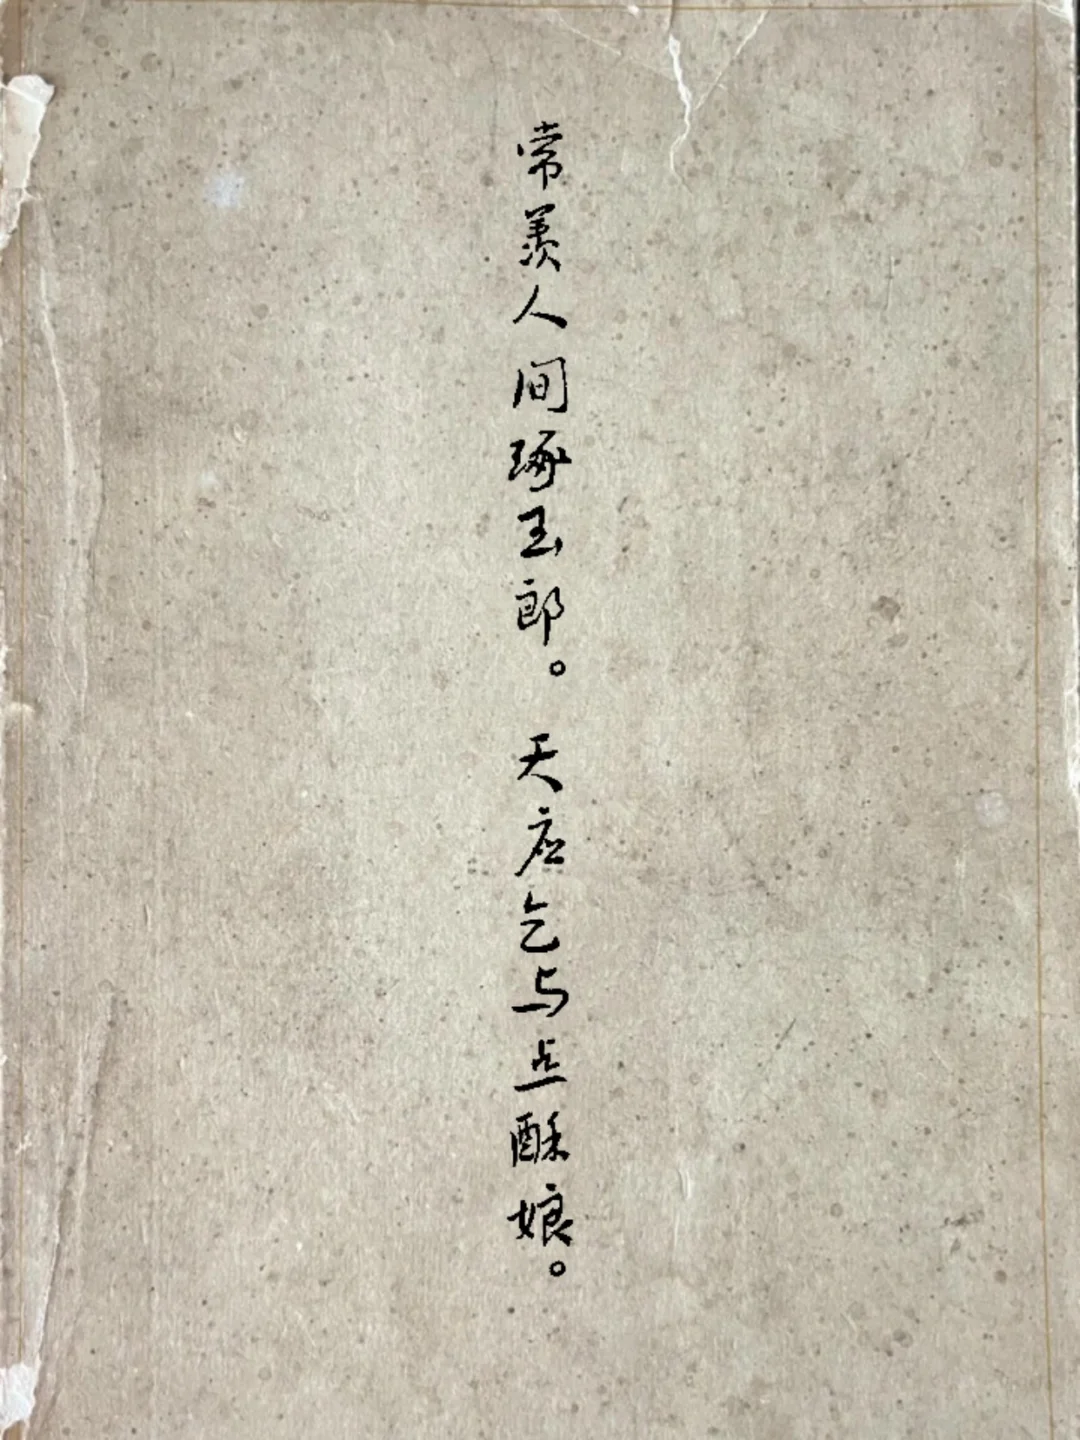 常羡人间琢玉郎。天应乞与点酥娘。